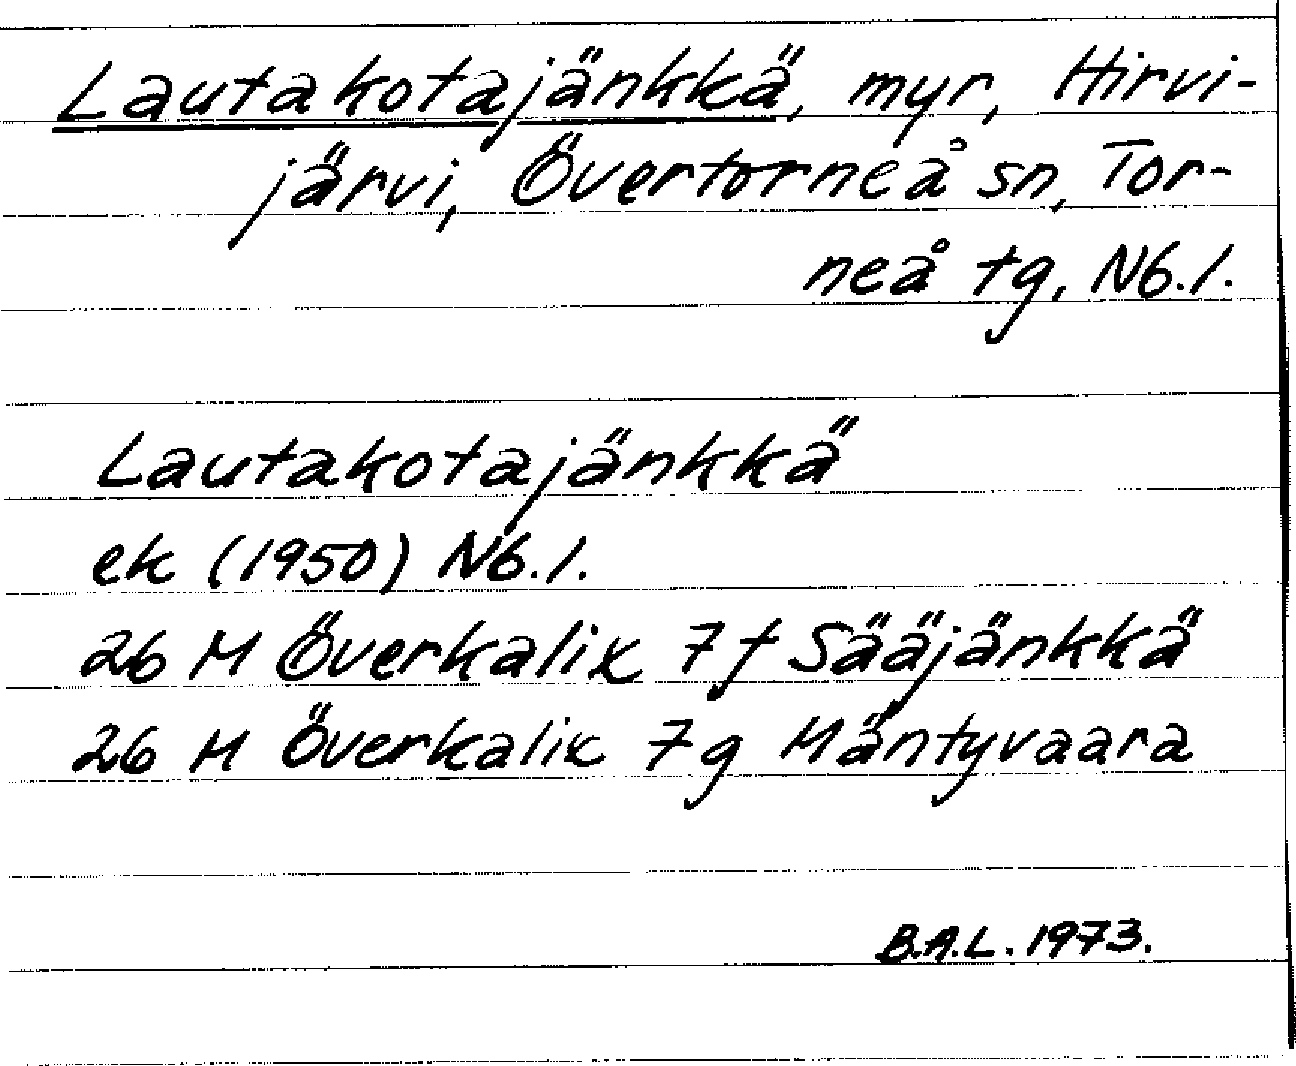 Lautakotajänkkä, myr, Hirvi-
järvi, Övertorneå sn, Tor-
neå tg, Nb.l.
Lautakotajänkkä
ek (1950) Nb.l.
26 M Överkalix 7f Sääjänkkä
26 M Överkalix 7g Mäntyvaara
B.A.L. 1973.